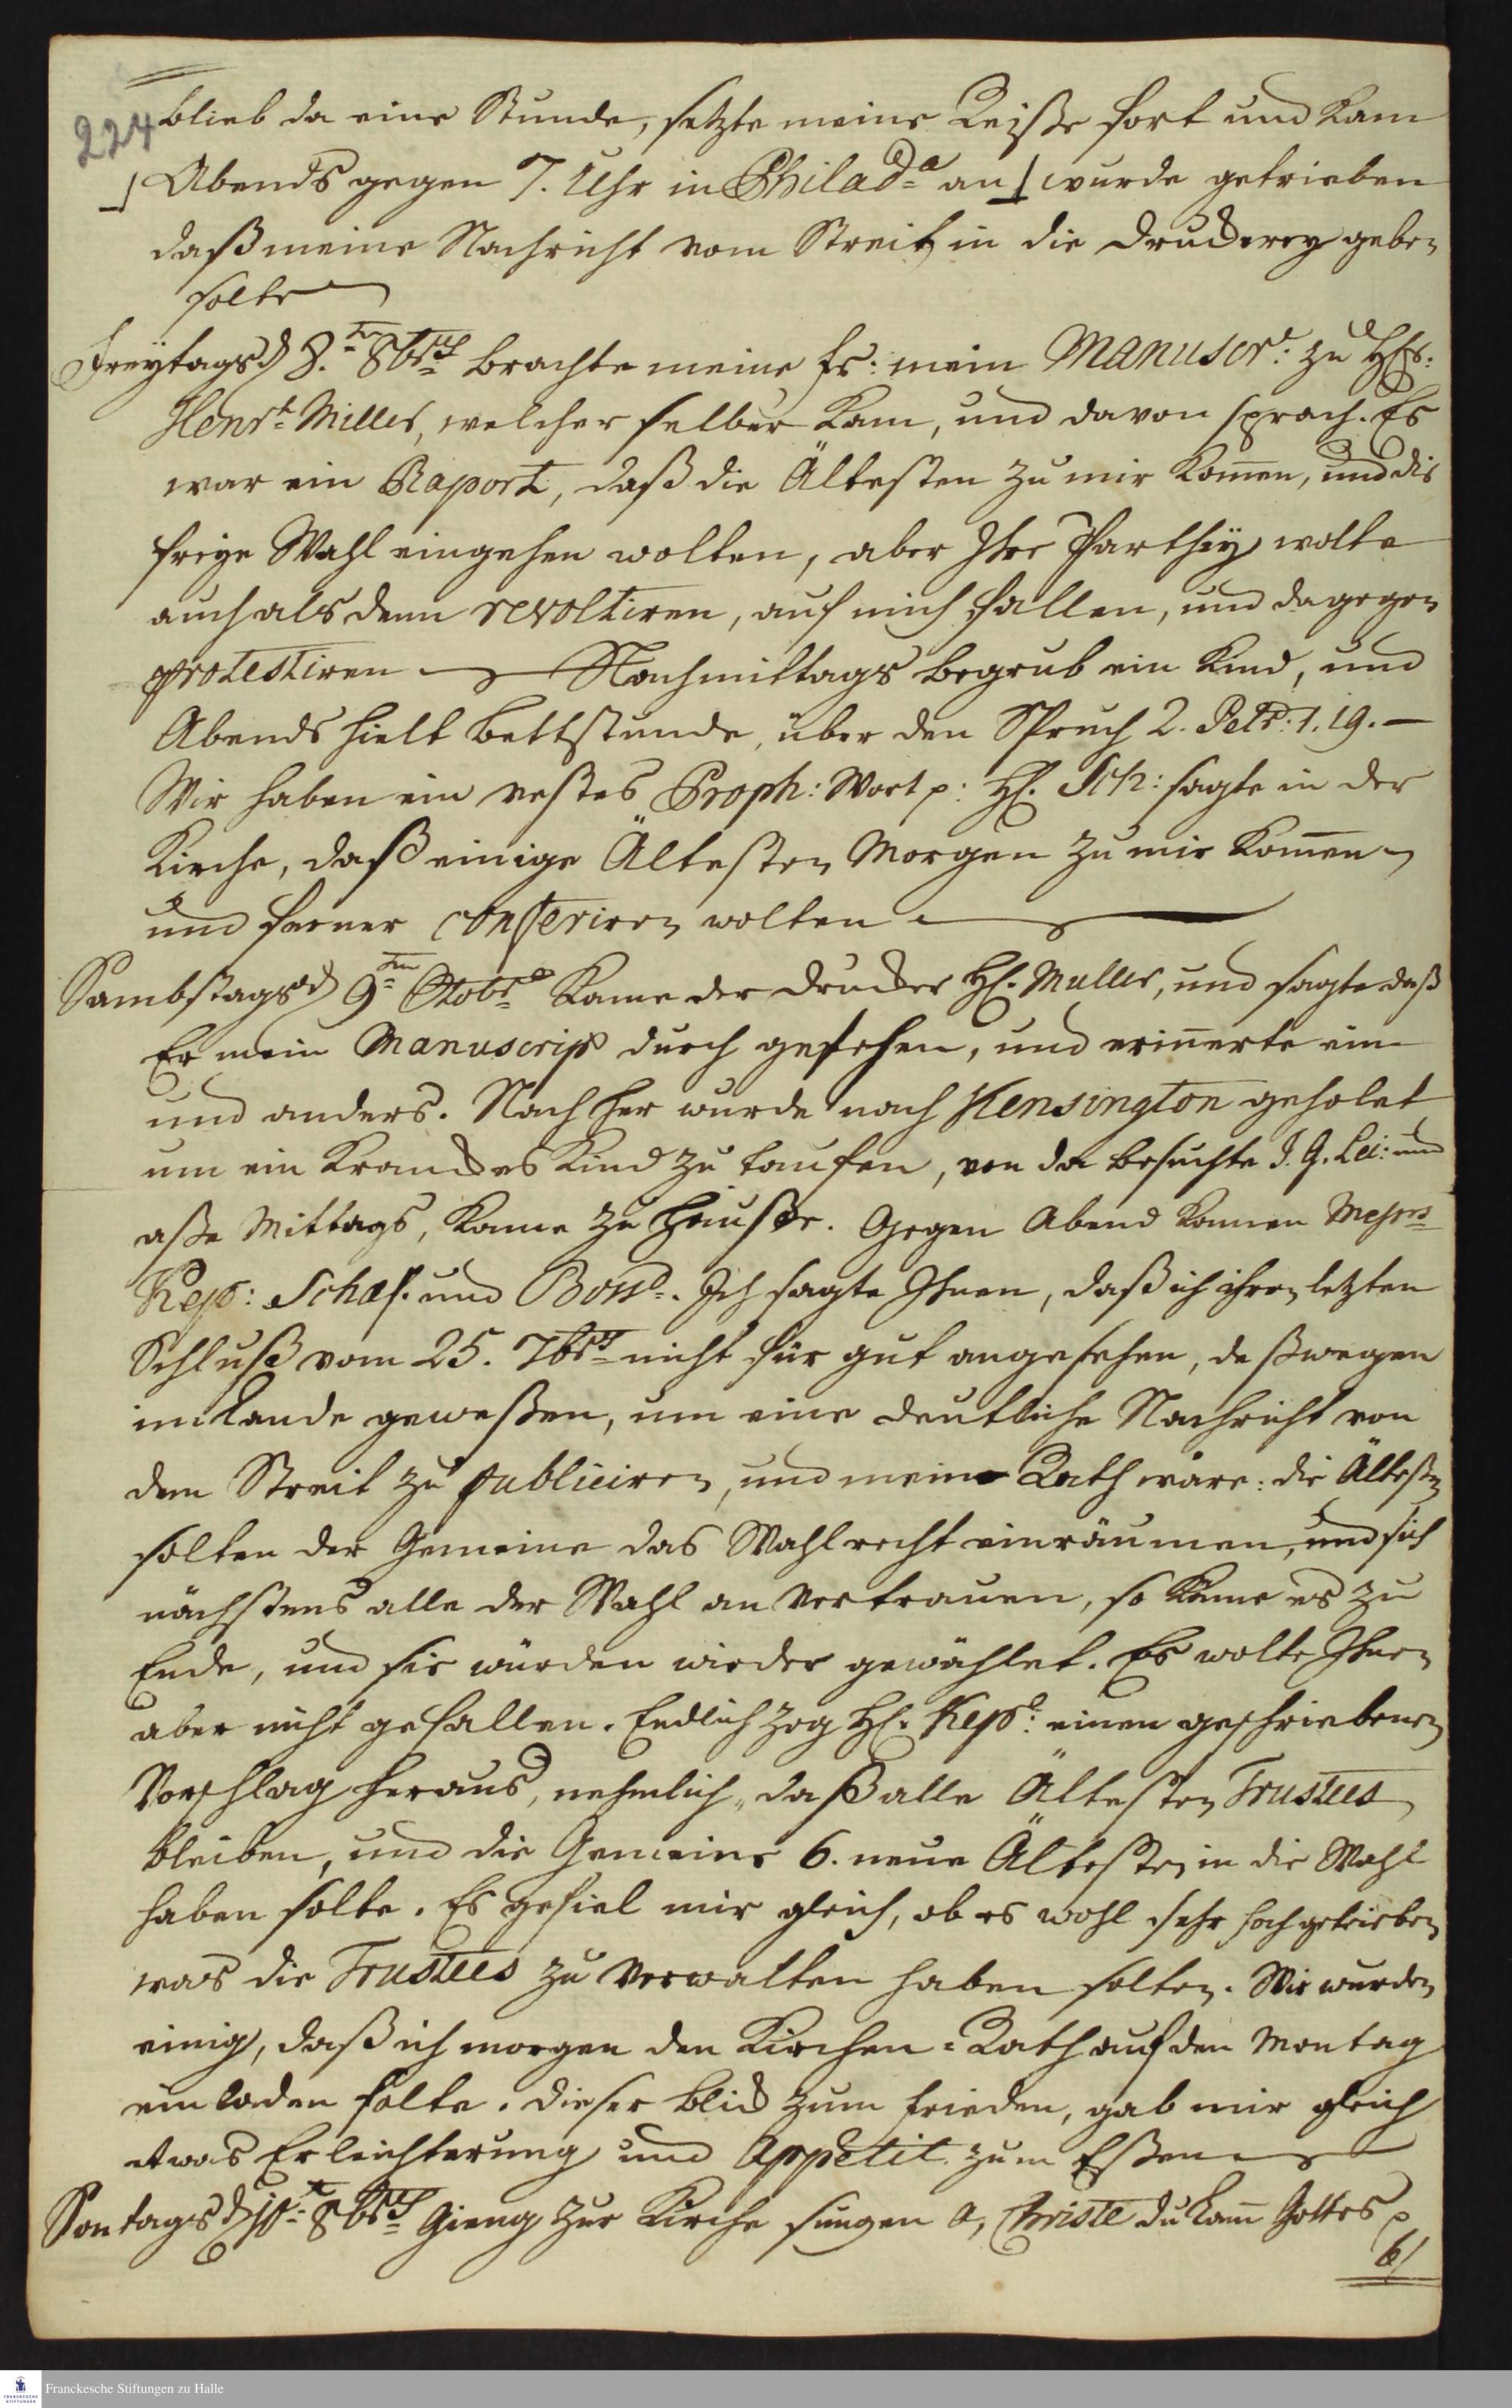 224
blieb da eine Stunde, setzte meine Reiße fort und kam
Abends gegen 7. Uhr in Philada an wurde getrieben
daß meine Nachricht vom Streit in die Druckerey geben
solte
Freytags d 8.ten 8br brachte meine fr: mein Manuscr: zu HEr:
Henr: Miller, welcher selber kam, und davon sprach. Es
war ein Raport, daß die Ältesten zu mir kom̄en, und die
freye Wahl eingehen wolten, aber Ihre Parthey wolte
auch als denn revoltiren, auf mich fallen, und dagegen
protestiren Nachmittags begrub ein Kind, und
Abends hielt bettstunde, über den Spruch 2. Petr: 1. 19. –
Wir haben ein vestes Proph: Wort p: H. Sch: sagte in der
Kirche, daß einige Ältesten Morgen zu mir kom̄en
und ferner conferiren wolten
Sambstags d 9ten Octobr kame der Drucker H. Muller, und sagte daß
Er mein Manuscript durch gesehen, und erin̄erte ein
und anders. Nach her wurde nach Kensington geholet
um ein Kranckes Kind zu taufen, von da besuchte J. G. Lei: und
aße Mittags, kame zu Hauße. Gegen Abend kamen Messrs
Kepp: Schaf. und Bossd. Ich sagte Ihnen, daß ich ihren letzten
Schluß vom 25. 7br nicht für gut angesehen, deßwegen
im Lande geweßen, um eine deutliche Nachricht von
dem Streit zu publiciren, und mein Rath wäre: die Ältestn
solten der Gemeine das Wahlrecht einräumen, und sich
nächstens alle der Wahl an Vertrauen, so käme es zu
Ende, und sie würden wieder gewählet. Es wolte Ihnen
aber nicht gefallen. Endlich zog H. Kepp: einen geschriebenen
Vorschlag heraus, nehmlich, daß alle Ältesten Trustees
bleiben, und die Gemeine 6. neue Ältesten in die Wahl
haben solte. Es gefiel mir gleich, ob es wohl sehr hoch getrieben
was die Trustees zu Verwalten haben solten. Wir wurden
einig, daß ich morgen den Kirchen-Rath auf den Montag
einladen solte. Dieser blick zum frieden, gab mir gleich
etwas Erleichterung und Appetit zum Eßen
Sontags d 10t 8br Gieng zur Kirche sungen a, Christe du Lam̄ Gottes p
b/
Franckesche Stiftungen zu Halle